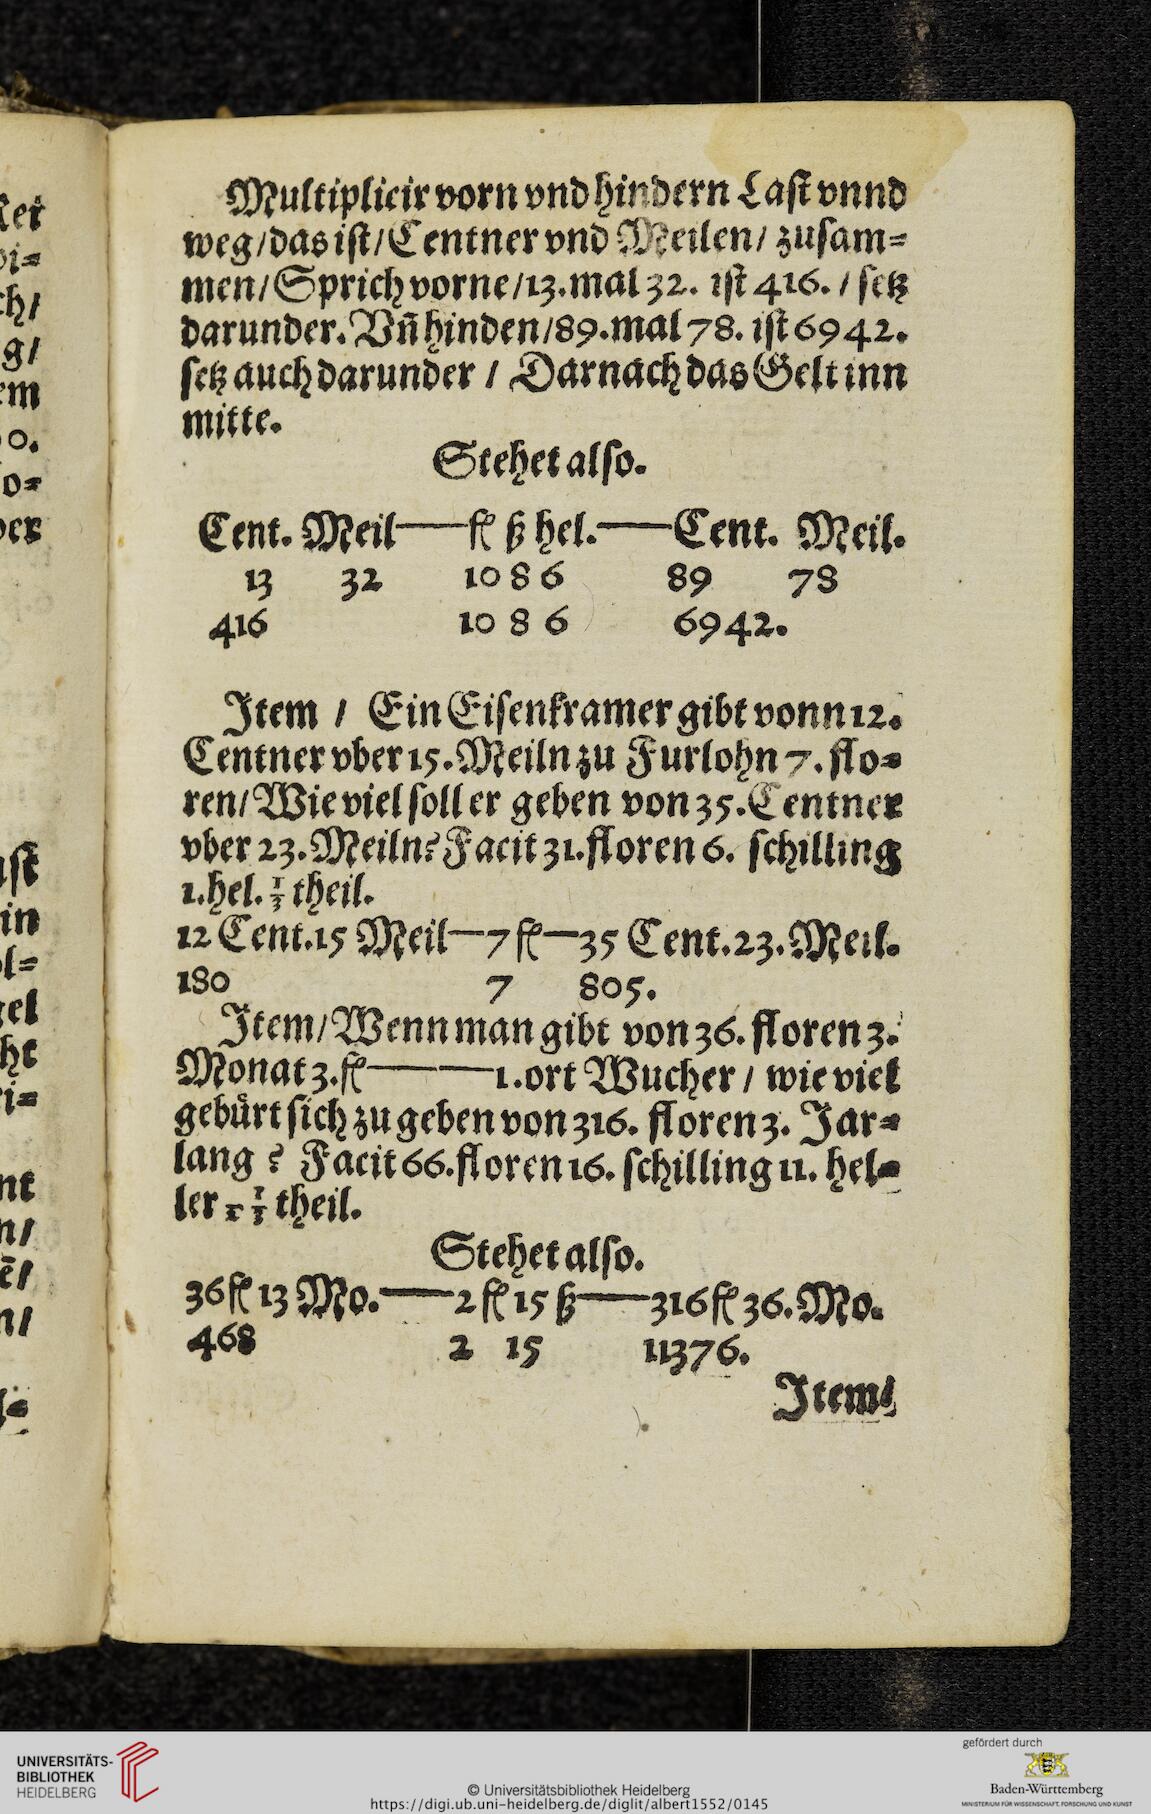 Multiplicir vorn vnd hindern Last vnnd
weg/das ist/Centner vnd Meilen/ zusam=
men/Sprich vorne/13.mal 32. ist 416./ setz
darunder. Vñ hinden/89.mal 78. ist 6942.
setz auch darunder / Darnach das Gelt inn
mitte.
Stehet also.
Cent. Meil——fl ß hel.——Cent. Meil.
13 32 10 8 6 89 78
416 10 8 6 6942.
Item / Ein Eisenkramer gibt vonn 12.
Centner vber 15. Meiln zu Furlohn 7. flo=
ren/ Wie viel soll er geben von 35. Centner
vber 23. Meiln? Facit 31. floren 6. schilling
1. hel. 1/3 theil.
12 Cent. 15 Meil—7 fl—35 Cent. 23. Meil.
180 7 805.
Item/ Wenn man gibt von 36. floren 3.
Monat 3. fl————1. ort Wucher / wie viel
gebürt sich zu geben von 316. floren 3. Jar=
lang ? Facit 66. floren 16. schilling 11. hel=
ler theil.
Stehet also.
36 fl 13 Mo.——2 fl 15 ß——316 fl 36. Mo.
468 2 15 11376.
Item/
ket
oi=
ch/
g/
em
0.
o=
ber
ast
in
ol=
gel
cht
i=
nt
n/
ẽ/
n/
l=
UNIVERSITÄTS-
BIBLIOTHEK
HEIDELBERG
© Universitätsbibliothek Heidelberg
https://digi.ub.uni-heidelberg.de/diglit/albert1552/0145
gefördert durch
Baden-Württemberg
MINISTERIUM FÜR WISSENSCHAFT, FORSCHUNG UND KUNST